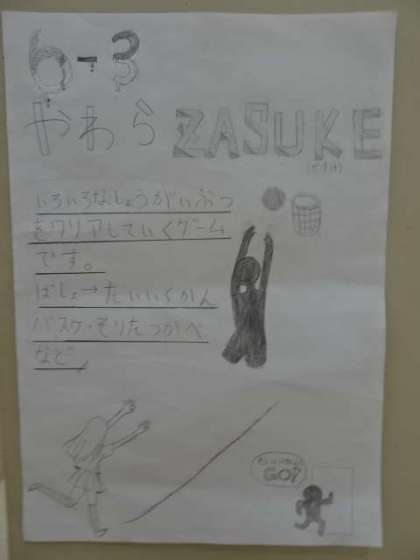 6-3
やわらZASUKE
(さすけ)
いろいろなしょうがいぶつ
をクリアしていくゲーム
です。
ばしょ→たいいくかん
バスケ・そりたつかべ
など
GO!